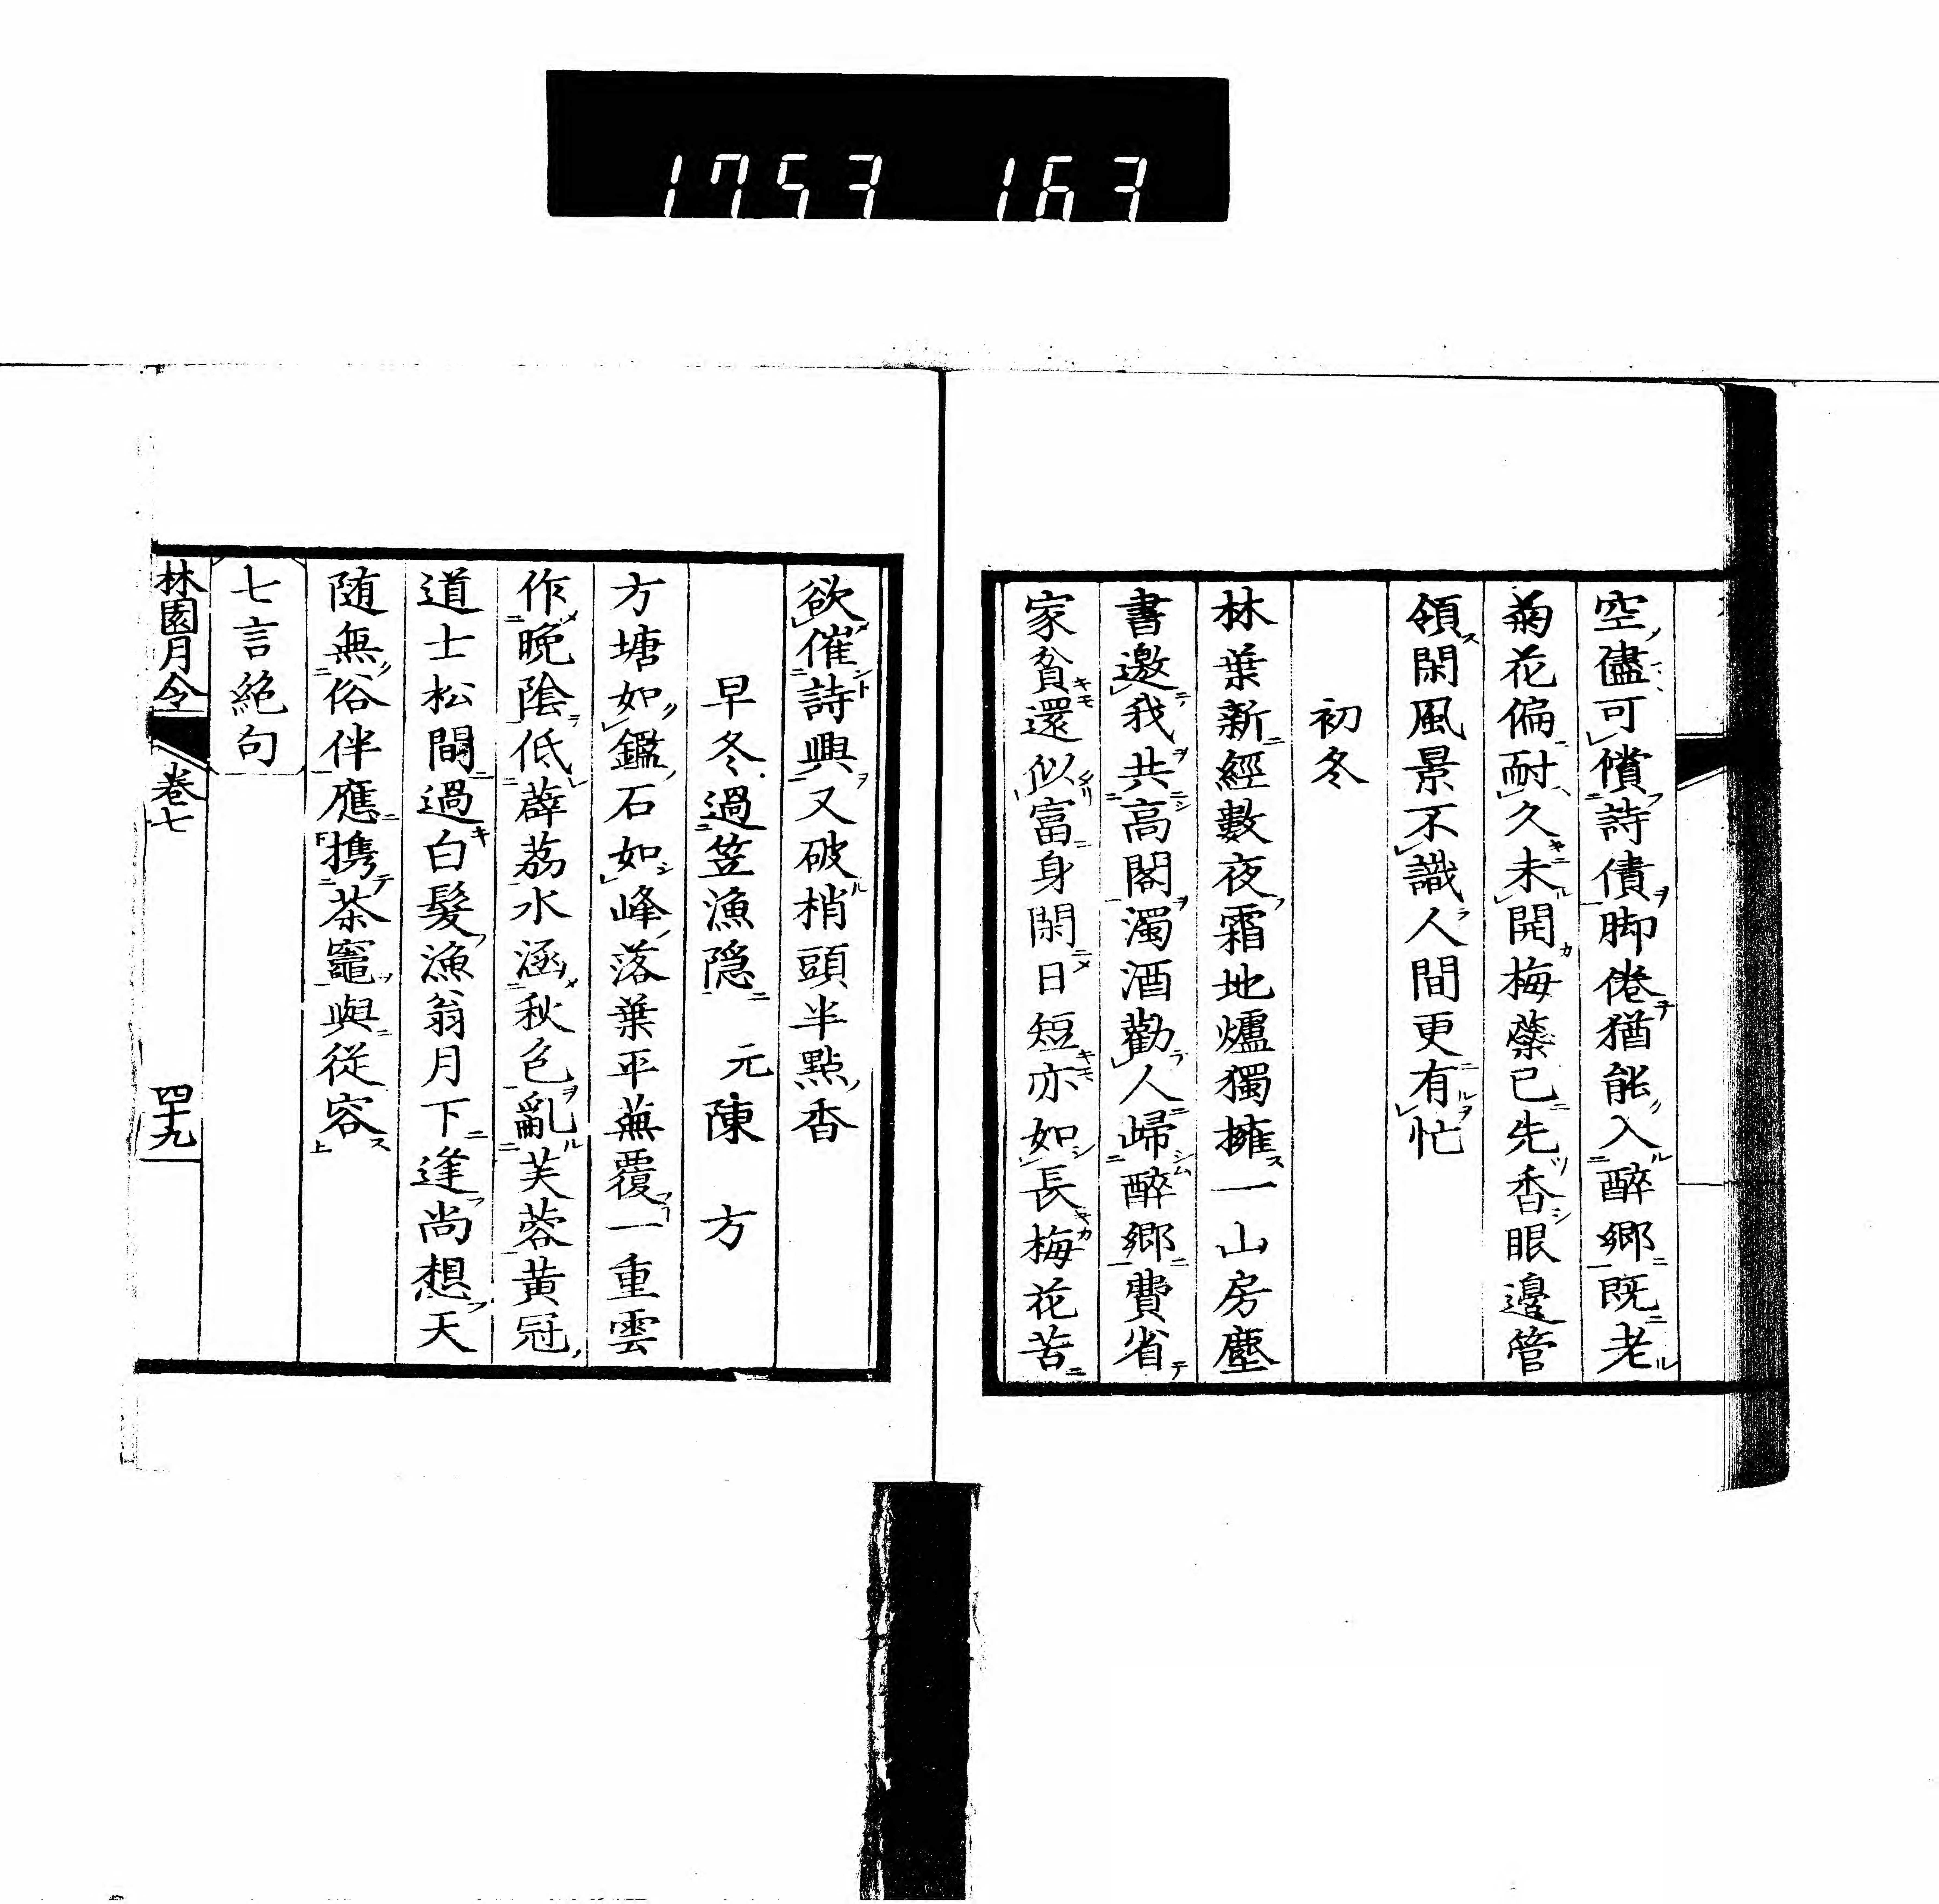 1753 163
空儘可償詩債脚倦猶能入醉郷既老
菊花偏耐久未開梅蘂已先香眼邊管
領閑風景不識人間更有忙
初冬
林葉新經數夜霜地爐獨擁一山房塵
書邀我共高閣濁酒勸人歸醉郷費省
家貧還似富身閑日短亦如長梅花苦
欲催詩興又破梢頭半點香
早冬過笠漁隐 元陳 方
方塘如鑑石如峰落葉平蕪覆一重雲
作晩陰低薜荔水涵秋色亂芙蓉黄冠
道士松間過白髮漁翁月下逢尚想天
随無俗伴應携茶竈與従容
七言絶句
林園月令 卷七 四十九